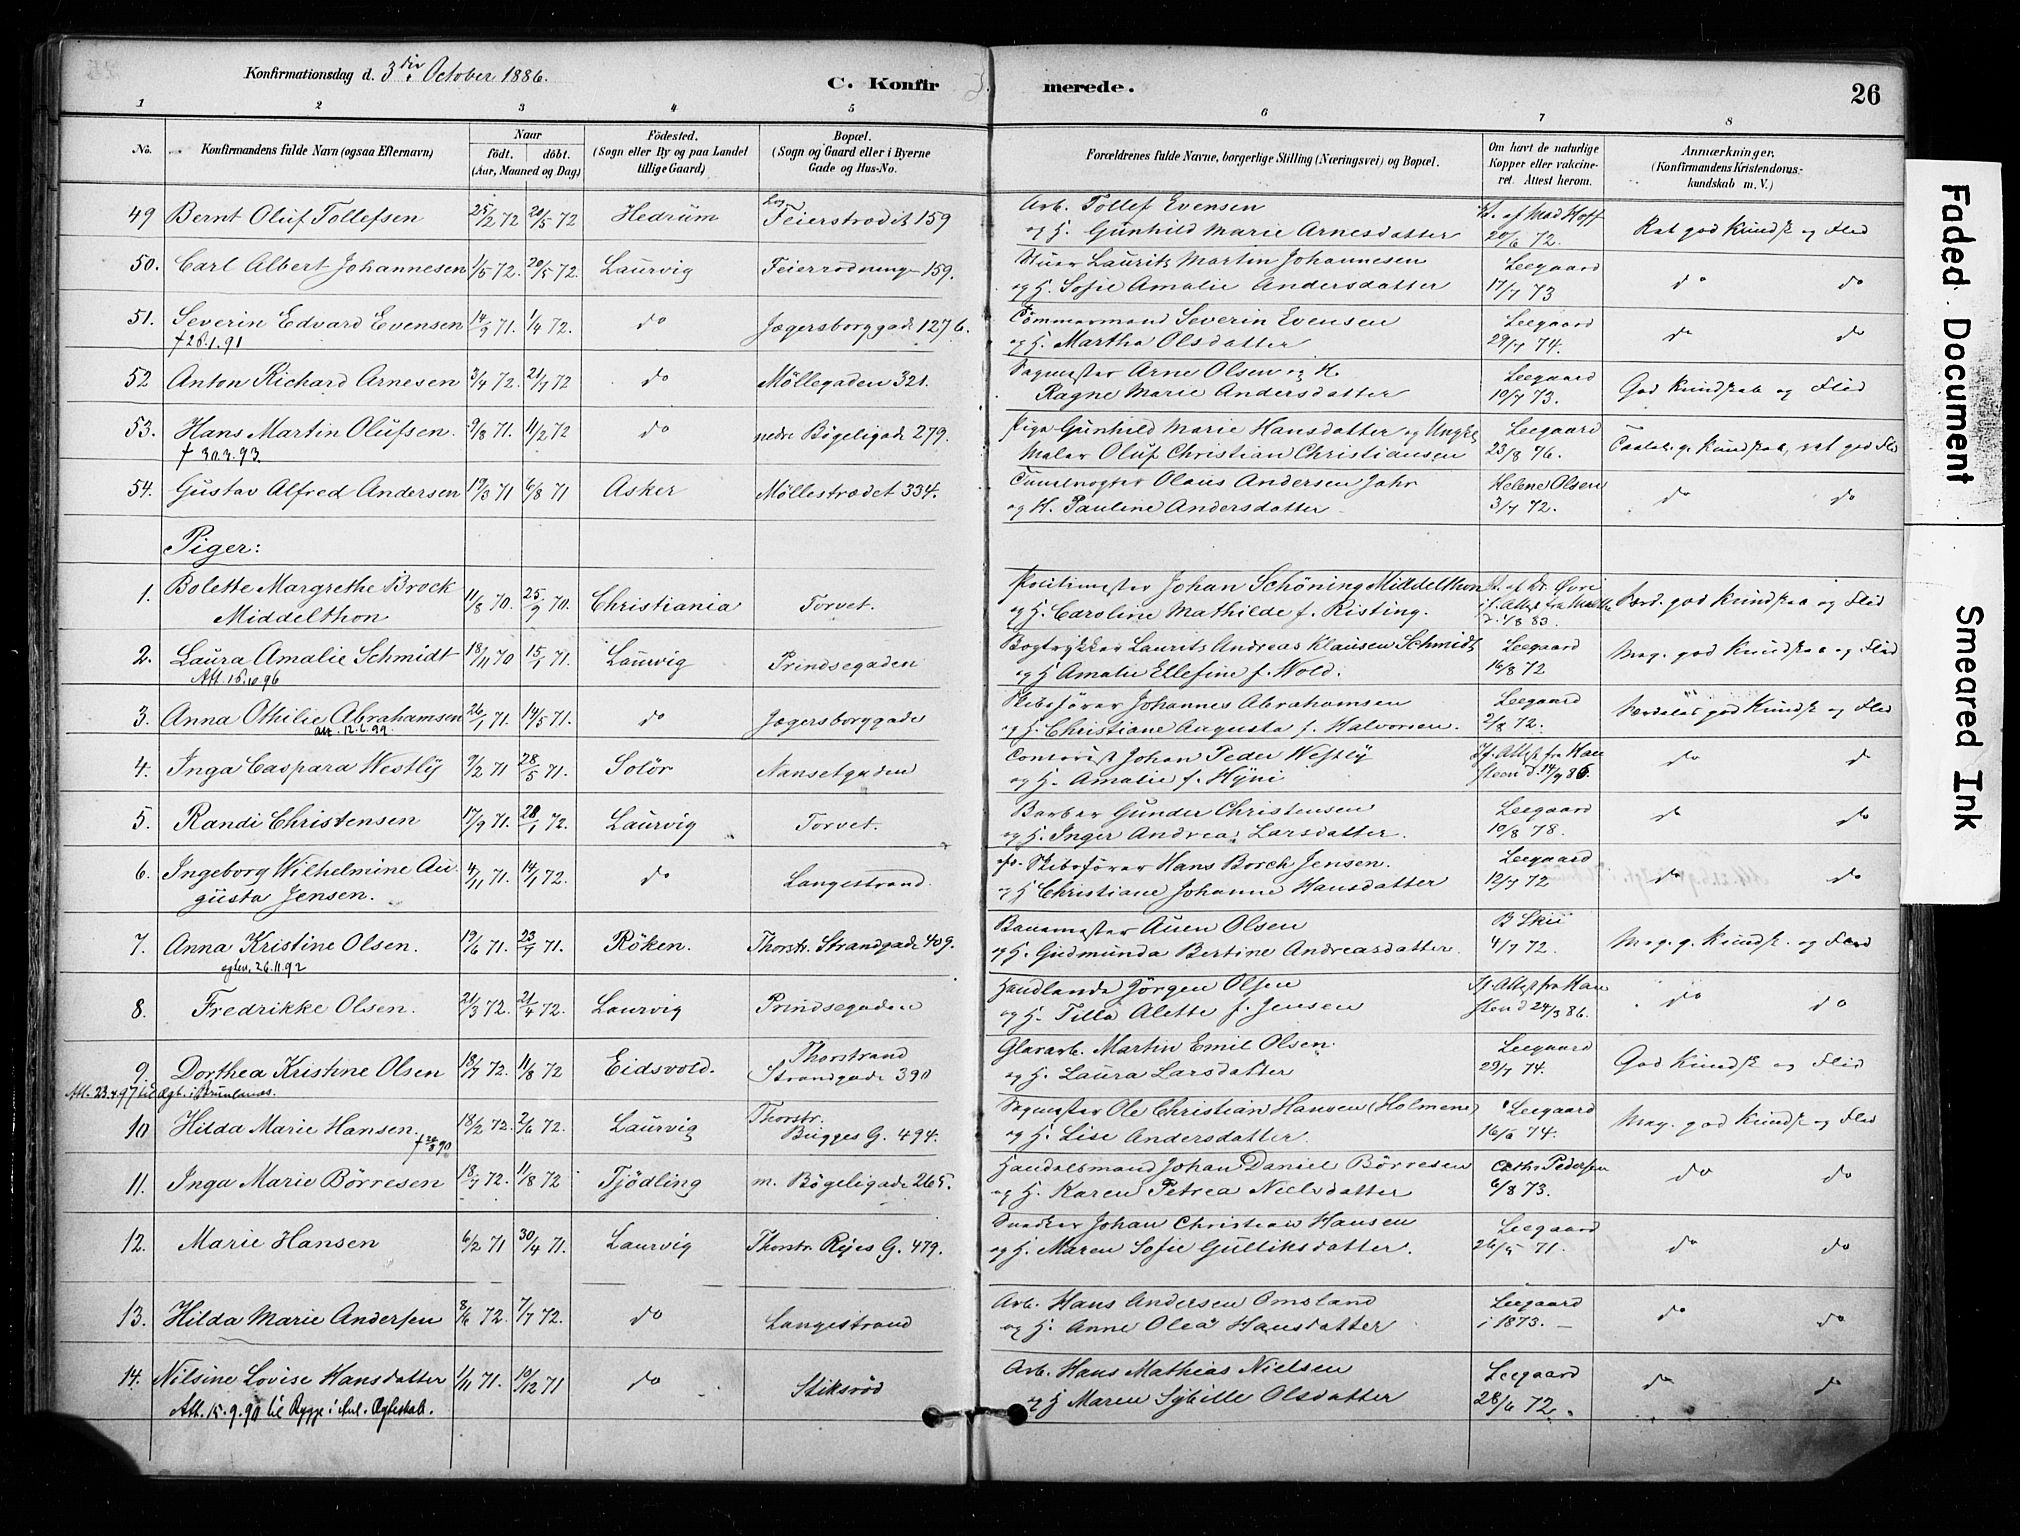 Konfirmationsdag d. 3die October 1886.
C. Konfirmerede.
26
1 2 3 4 5 6 7 8
No.
Konfirmandens fulde Navn (ogsaa Efternavn)
Naar
födt. döbt.
(Aar, Maaned og Dag)
Födested.
(Sogn eller By og paa Landet tillige Gaard)
Bopæl.
(Sogn og Gaard eller i Byerne Gade og Hus-No.
Forældrenes fulde Navne, borgerlige Stilling (Næringsvei) og Bopæl.
Om havt de naturlige Kopper eller vakcineret. Attest herom.
Anmærkninger.
(Konfirmandens Kristendomskundskab m. V.)
49 Bernt Oluf Tollefsen 25/2 72 20/5 72 Hedrum Feierstrædet 159 Arb. Tollef Evensen
og H. Gunhild Marie Arnesdatter 20/6 72. Ret god Kundsk og Flid
50. Carl Albert Johannesen 1/5 72. 20/5 72. Laurvig Feierrodningen 159. Laurits Martin Johannesen Leegaard
og H. Sofie Amalie Andersdatter 17/7 73 do do
51. Severin Edvard Evensen 14/9 71. 1/4 72. do Jægersborggade 127 b. Tömmermand Severin Evensen Leegaard
† 28.1.91 og H. Martha Olsdatter 29/7 74. do do
52 Anton Richard Arnesen 3/4 72. 21/7 72 do Möllegaden 321. Sagmester Arne Olsen og H. Leegaard
Ragne Marie Andersdatter 10/7 73. God Kundskab og Flid
53. Hans Martin Olufsen. 9/8 71. 11/2 72 do nedre Bögeligade 279. Pige Gunhild Marie Hansdatter og Ungk. Leegaard
† 30.3.93. Maler Oluf Christian Christiansen 23/8 76.
54. Gustav Alfred Andersen 19/3 71 6/8 71 Asker Möllestrædet 334. Olaus Andersen Jahr Helene Olsen
og H. Pauline Andersdatter 3/7 72. do do
Piger:
1. Bolette Margrethe Brock 11/8 70. 25/9 70. Christiania Torvet. Politimester Johan Schöning Middelthon
Middelthon og H. Caroline Mathilde f. Risting. Særd. god Kundskab og Flid
2. Laura Amalie Schmidt 18/11 70 15/1 71. Laurvig Prindsegaden Bogtrykker Laurits Andreas Klausen Schmidt Leegaard
Att. 18.10.96 og H Amalie Ellefine f. Wold. 16/8 72 Meg. god Kundskab og Flid
3. Anna Othilie Abrahamsen 26/1 71. 14/5 71. do Jægersborggade Skibsförer Johannes Abrahamsen Leegaard
og H. Christiane Augusta f. Halvorsen. 2/8 72. Særdeles god Kundsk og Flid
4. Inga Caspara Westly 9/2 71 28/5 71. Solör Nansetgaden Contorist Johan Peder Westly
og H. Amalie f. Hyni do
5. Randi Christensen 17/9 71. 28/1 72. Laurvig Torvet. Barber Gunder Christensen Leegaard
og H. Inger Andrea Larsdatter. 10/8 78. do do
6. Ingeborg Wilhelmine Au- 4/11 71. 14/1 72. do Langestrand. Skibsförer Hans Borch Jensen. Leegaard
gusta Jensen. og H Christiane Johanne Hansdatter 12/7 72 do do
7. Anna Kristine Olsen. 19/6 71. 23/7 71. Röken. Thorstr. Strandgade 409. Banemester Auen Olsen B Skii
26.11.92 og H. Gudmunda Bertine Andreasdatter. 4/7 72. Meg. g. Kundsk. og Flid
8. Fredrikke Olsen. 21/3 72. 21/4 72. Laurvig Prindsegaden Handlende Jörgen Olsen
og H. Tilla Alette f. Jensen 24/3 86. do do
9. Dorthea Kristine Olsen 18/7 72. 11/8 72 Eidsvold. Thorstrand Strandgade 390 Glasarb. Martin Emil Olsen. Leegaard
Att. 23.4.97 til Ægt. i Brunlanæs. og H. Laura Larsdatter 29/7 74. God Kundsk og Flid
10 Hilda Marie Hansen. 18/2 72. 2/6 72. Laurvig Thorstr. Bugges G. 494. Sagmester Ole Christian Hansen (Holmene) Leegaard
og H. Lise Andersdatter. 16/6 74. Meg. god Kundsk og Flid
11. Inga Marie Börresen 18/7 72. 11/8 72 Tjödling m. Bögeligade 265. Handelsmand Johan Daniel Börresen Cathr Pedersen
og H. Karen Petrea Nielsdatter 6/8 73. do do
12. Marie Hansen 6/2 71 30/4 71. Laurvig Thorstr. Ryes G. 479. Snedker Johan Christian Hansen Leegaard
og H. Maren Sofie Gulliksdatter. 26/5 71. do do
13. Hilda Marie Andersen 8/6 72. 7/7 72. do Langestrand Arb. Hans Andersen Omsland Leegaard
og H. Anne Olea Hansdatter i 1873. do do
14. Nilsine Lovise Hansdatter 1/11 71. 10/12 71 do Stiksröd Arb. Hans Mathias Nielsen Leegaard
Att. 15.9.90 til Rygge i Anl. Ægteskab. og H Maren Sybille Olsdatter 28/6 72. do do
Faded Document
Smeared Ink